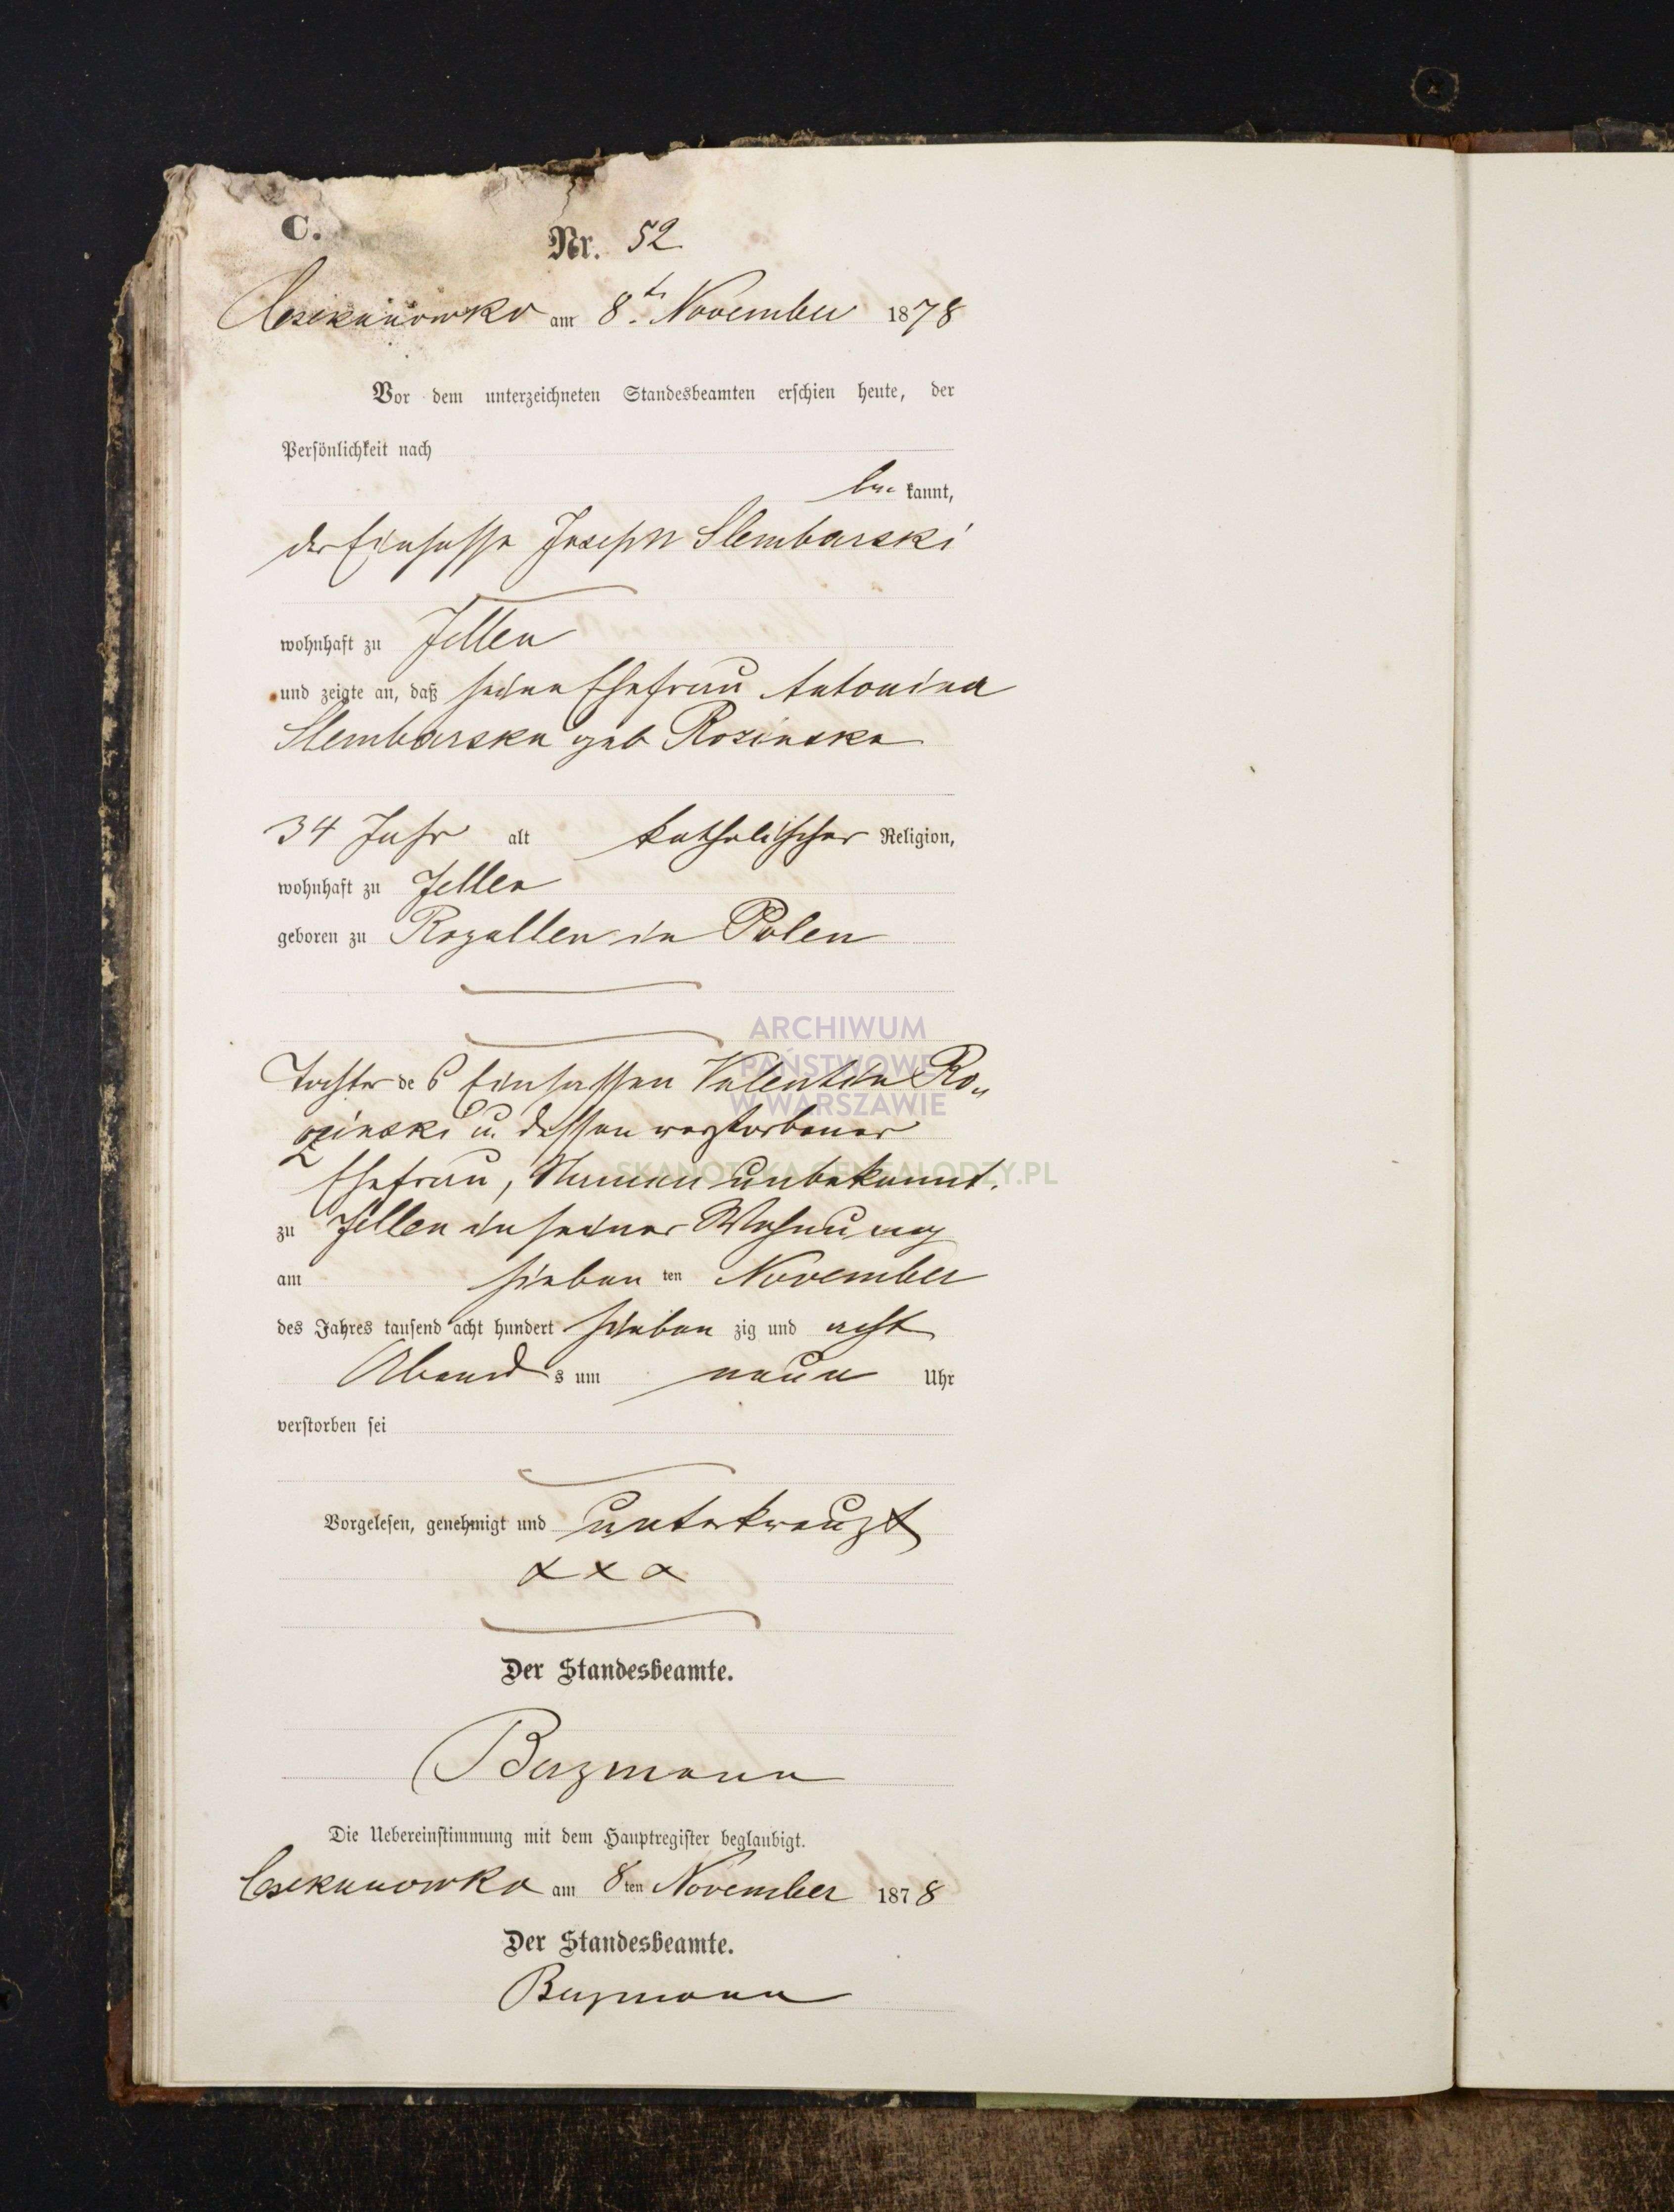 C.
Nr. 52
Czekanowko am 8ten November 1878
Vor dem unterzeichneten Standesbeamten erschien heute, der
Persönlichkeit nach
be kannt,
der Einsasse Joseph Slembarski
wohnhaft zu Jellen
und zeigte an, daß seine Ehefrau Antonina
Slembarska geb Rozinska
34 Jahr alt katholischer Religion,
wohnhaft zu Jellen
geboren zu Rogallen in Polen
ARCHIWUM
PAŃSTWOWE
W WARSZAWIE
Tochter des Einsassen Valentin Ro„
zinski u. dessen verstorbener
SKANOTEKA.GENEALODZY.PL
Ehefrau, Namen unbekannt.
zu Jellen in seiner Wohnung
am sieben ten November
des Jahres tausend acht hundert sieben zig und acht
Abend s um neun Uhr
verstorben sei
Vorgelesen, genehmigt und unterkreuzt
x x x
Der Standesbeamte.
Bergmann
Die Uebereinstimmung mit dem Hauptregister beglaubigt.
Czekanowko am 8 ten November 1878
Der Standesbeamte.
Bergmann